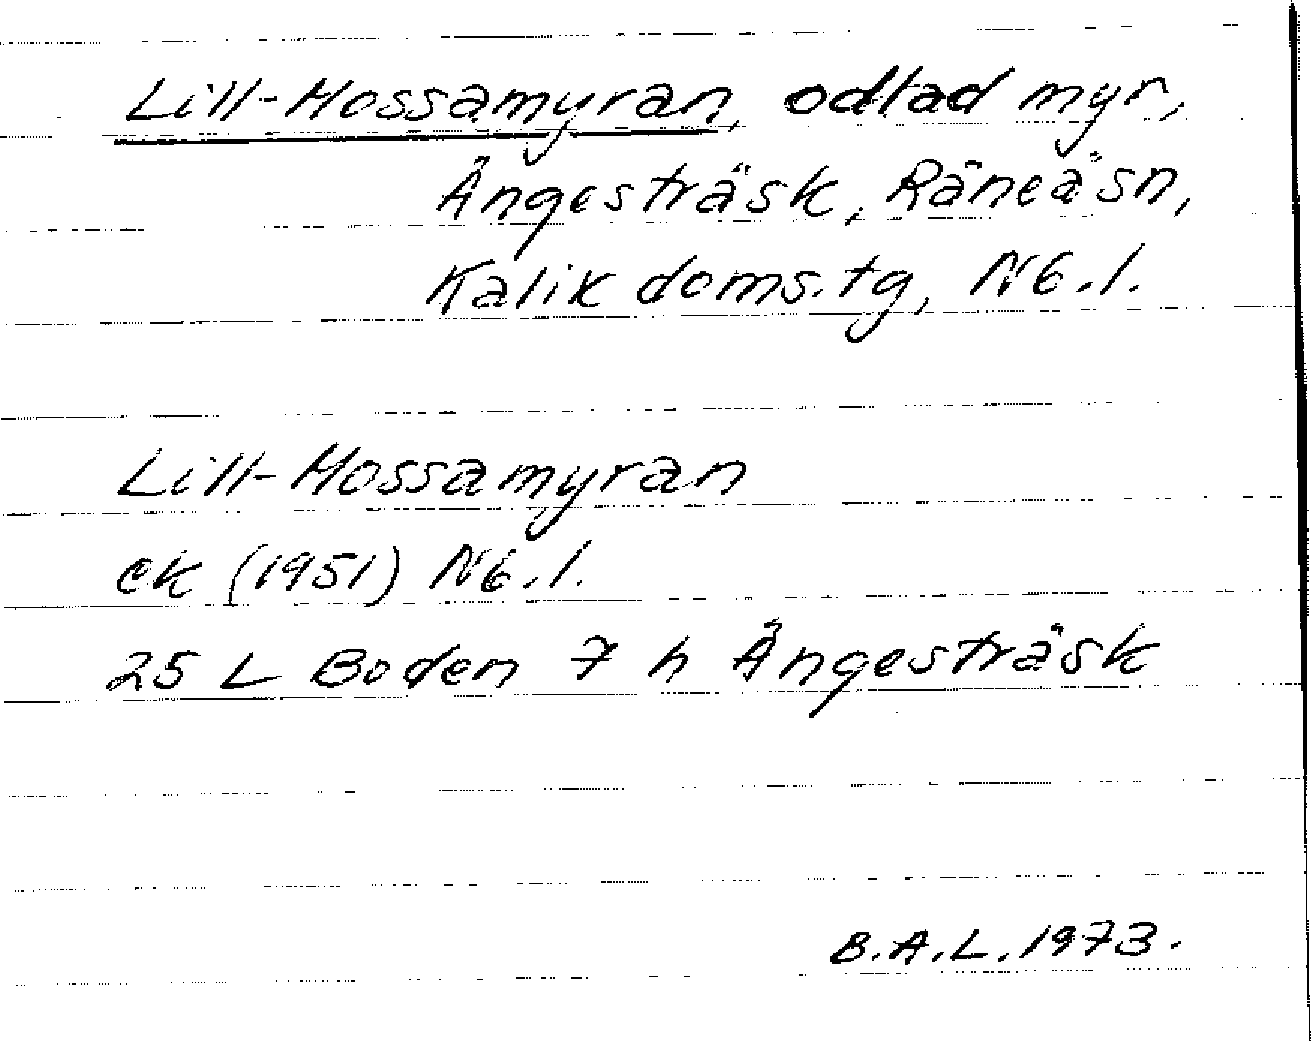 Lill-Mossamyran, odlad myr,
Ängesträsk, Råneå sn,
Kalix doms.tg, Nb.l.
Lill-Mossamyran
ek (1951) Nb.l.
25 L Boden 7 h Ängesträsk
B.A.L. 1973.